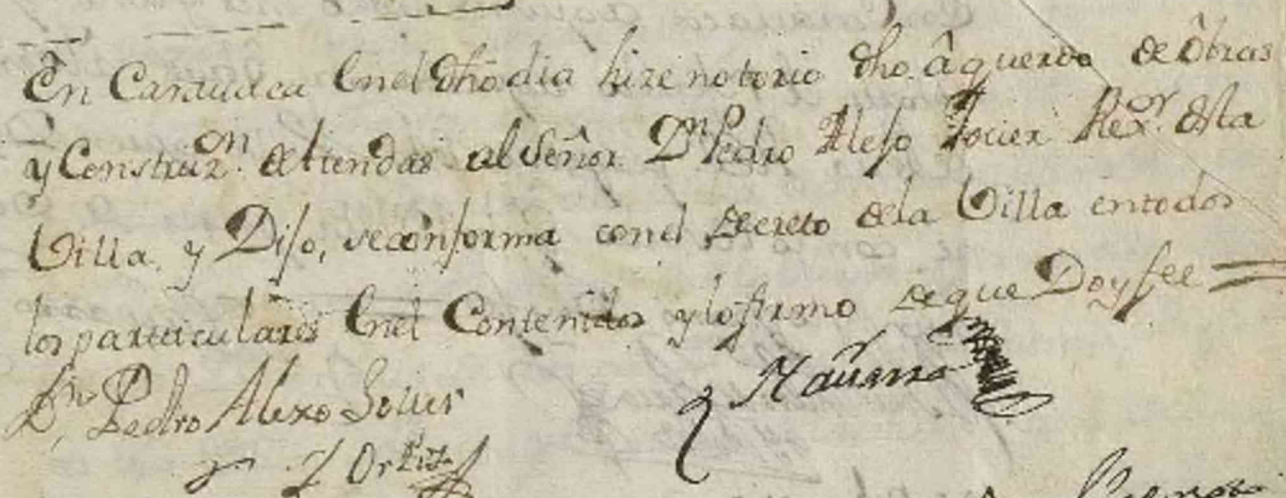 En Carauaca Enel dho dia hize notorio dho. âquerdo de ôbras
y Construzon. de tiendas al Señor Dn Pedro Alejo Jouier Rexor. desta
Villa, y Dijo, se conforma conel Decreto dela Villa entodos
los particulares Enel Contenidos y lo firmo de que Doy fee =
Dn. Pedro Alexo Jouer Nauarro
y Ortiz